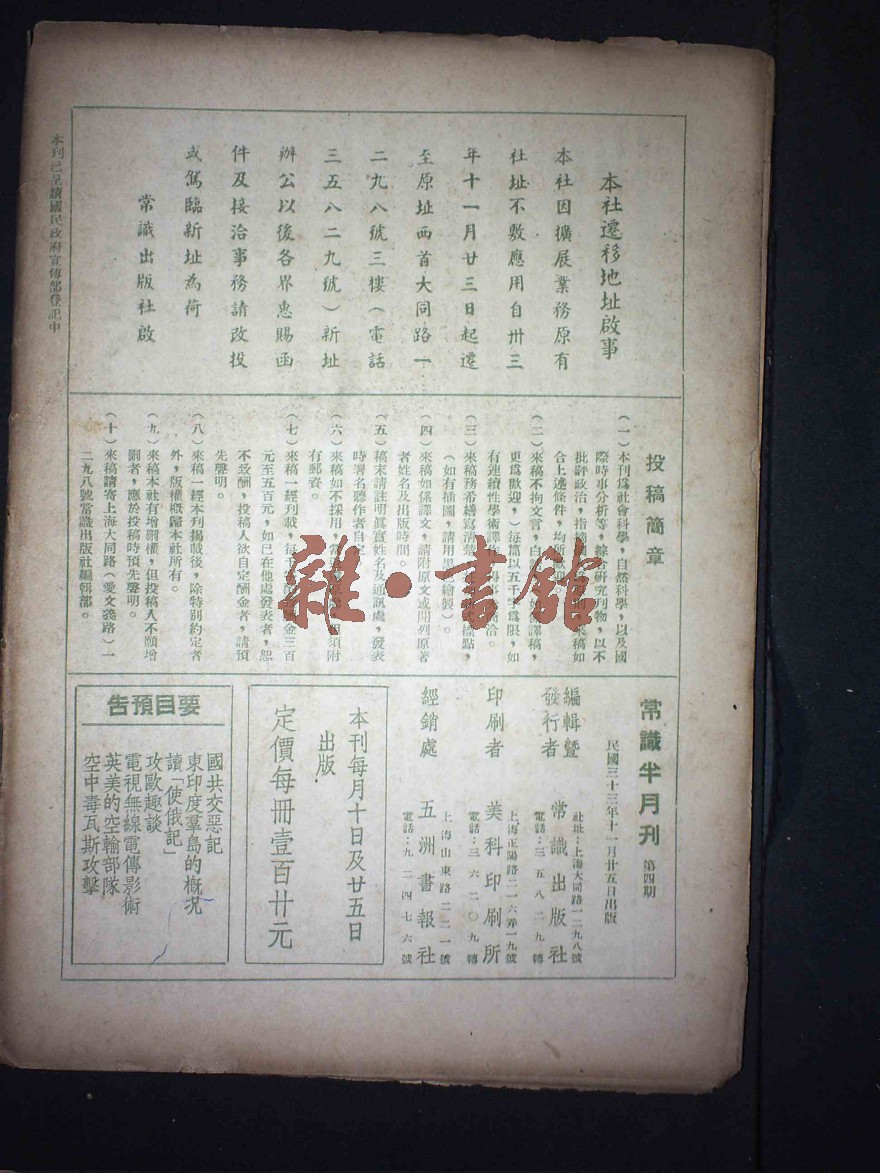 本社遷移地址啟事
本社因擴展業務原有
社址不敷應用自卅三
年十一月廿三日起遷
至原址西首大同路一
二九八號三樓（電話
三五八二九號）新址
辦公以後各界惠賜函
件及接洽事務請改投
或駕臨新址為荷
常識出版社啟
本刊已呈請國民政府宣傳部登記中
投稿簡章
（一）本刊爲社會科學，自然科學，以及國
際時事分析等，綜合研究刊物，以不
批評政治，指
來稿如
合上述條件，均所
（二）來稿不拘文言，白
譯稿，
更爲歡迎，）每篇以五千字爲限，如
有連續性學術譯
洽。
（三）來稿務希繕寫清楚
標點，
（如有插圖，請用墨色繪製）。
（四）來稿如係譯文，請附原文或開列原著
者姓名及出版時間。
（五）稿末請註明眞實姓名及通訊處，發表
時署名聽作者自定
（六）來稿如不採用，
須附
有郵資。
（七）來稿一經刊載，每千
金三百
元至五百元，如已在他處發表者，恕
不致酬，投稿人欲自定酬金者，請預
先聲明。
（八）來稿一經本刊揭載後，除特別約定者
外，版權概歸本社所有。
（九）來稿本社有增刪權，但投稿人不願增
刪者，應於投稿時預先聲明。
（十）來稿請寄上海大同路（愛文義路）一
二九八號常識出版社編輯部。
常識半月刊 第四期
民國三十三年十一月廿五日出版
編輯暨
發行者
常識出版社
社址：上海大同路一二九八號
電話：三五八二九轉
印刷者
美科印刷所
上海正陽路二一六弄一九號
電話：三六二〇九轉
經銷處
五洲書報社
上海山東路二二一號
電話：九二四七六號
本刊每月十日及廿五日
出版
定價每冊壹百廿元
要目預告
國共交惡記
東印度羣島的概況
讀「使俄記」
攻歐趣談
電視無線電傳影術
英美的空輸部隊
空中毒瓦斯攻擊
雜·書館